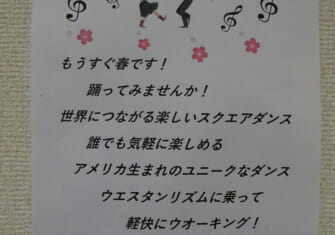 もうすぐ春です！
踊ってみませんか！
世界につながる楽しいスクエアダンス
誰でも気軽に楽しめる
アメリカ生まれのユニークなダンス
ウエスタンリズムに乗って
軽快にウオーキング！